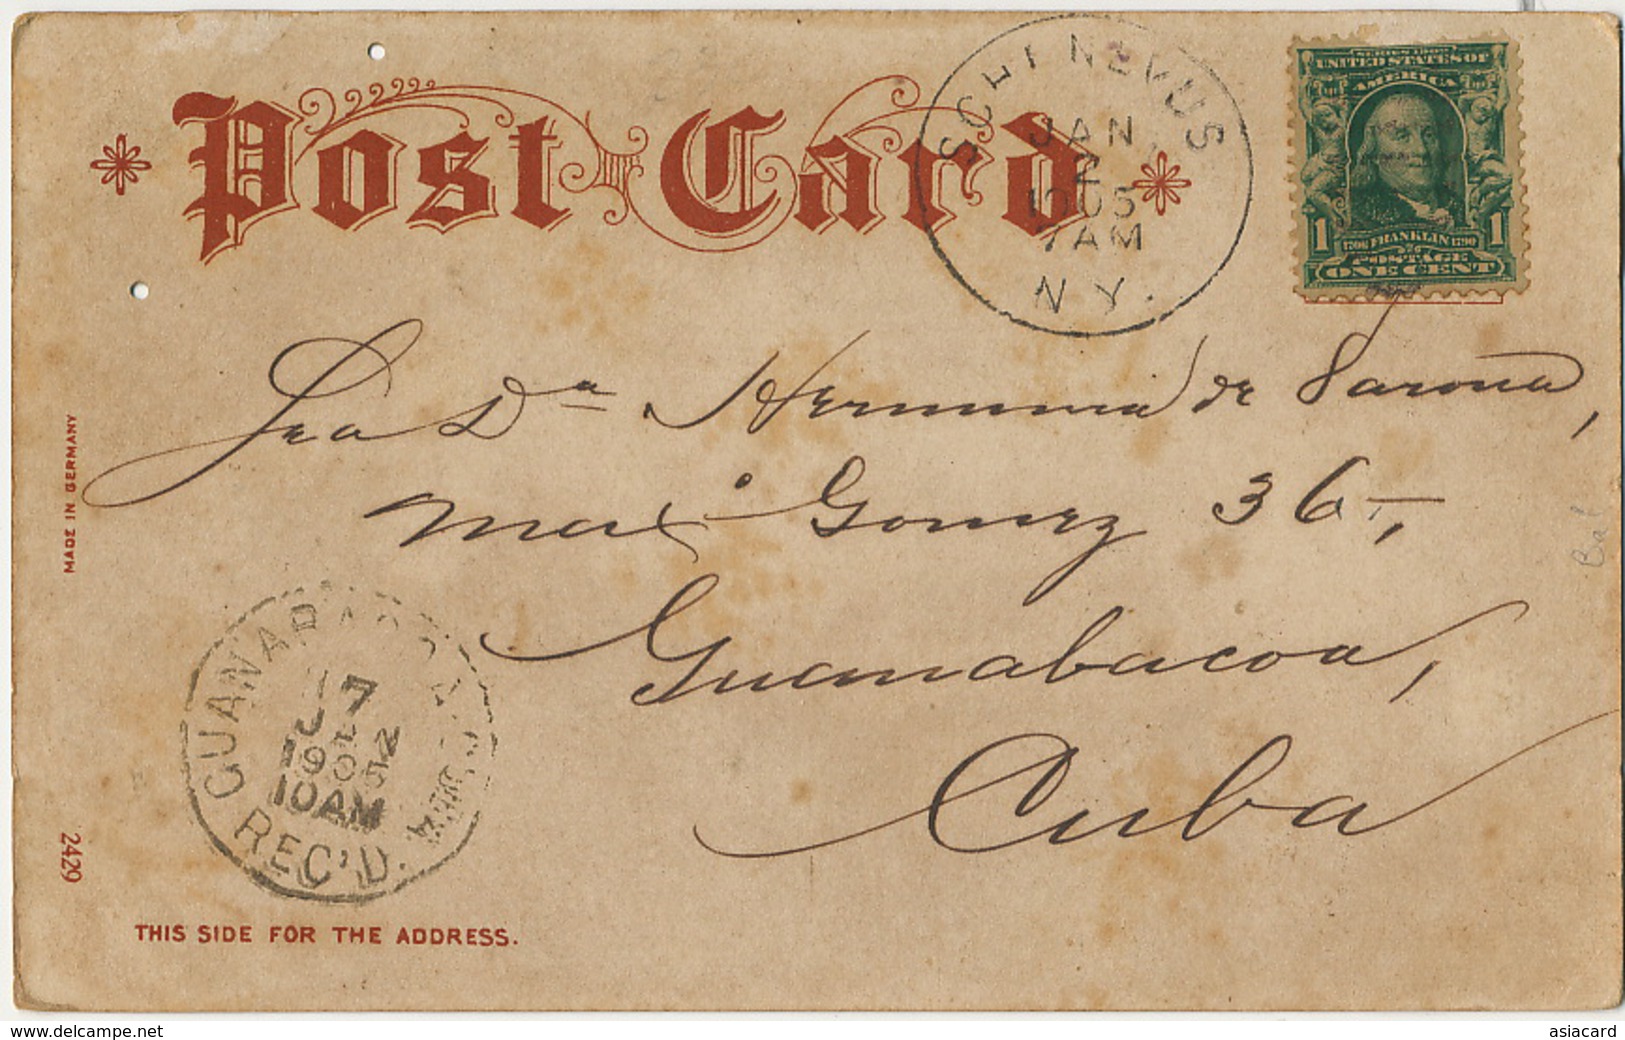 Post Card
SCHENEVUS
JAN
2
1905
7AM
N.Y.
SERIES 1902
UNITED STATES OF
AMERICA
1 1706 FRANKLIN 1790 1
POSTAGE
ONE CENT
Sra Dª Herminia de Varona,
Max° Gomez 36-,
Guanabacoa,
Cuba
MADE IN GERMANY
GUANABACOA
17
1905
10AM
REC'D.
2429
THIS SIDE FOR THE ADDRESS.
Bal
www.delcampe.net
asiacard